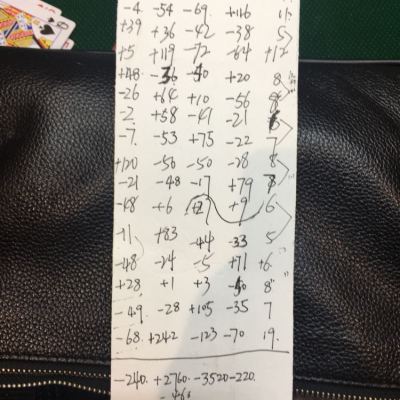 -4 -54 -69 +116 11
+39 +36 -42 -38 5
+5 +119 -72 -64 +12
+48 -36 +20 8
-26 +64 +10 -56 8
-2 +58 -41 -21
-7 -53 +75 -22 7
+120 -56 -50 -28 8
-21 -48 -17 +79 7
-18 +6 +9 6
-11 +83 -44 -33 5
-48 -24 -5 +71 +6
+28 +1 +3 -50 8
-49 -28 +105 -35 7
-68 +242 -123 -70 19.
-240. +2760. -3520 -220.